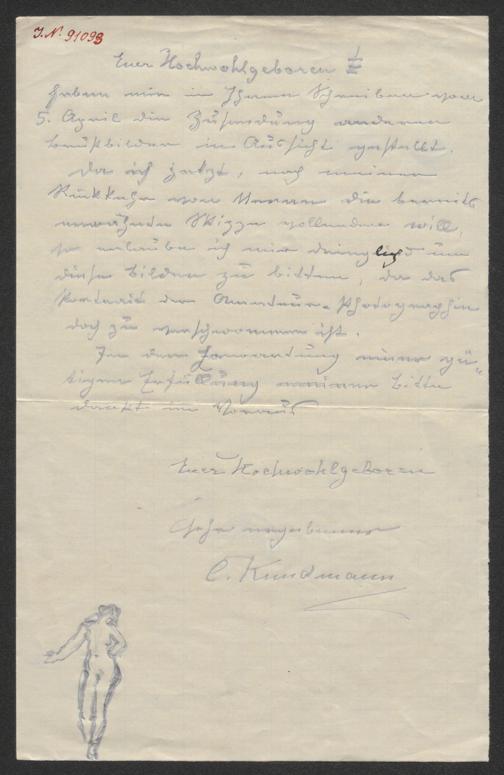 J.N. 91093
Euer Hochwohlgeboren!
haben mir in Ihrem Schreiben vom
5. April die Zusendung anderer
Lichtbilder in Aussicht gestellt.
Da ich jetzt, nach meiner
Rückkehr von Meran die bereits
erwähnte Skizze vollenden will,
so erlaube ich mir dringlichst um
diese Bilder zu bitten, da das
Portrait der Amateur-Photographie
doch zu verschwommen ist.
In der Erwartung einer gü-
tigen Erfüllung meiner Bitte
dankt im Voraus
Euer Hochwohlgeboren
sehr ergebener
C. Kundmann